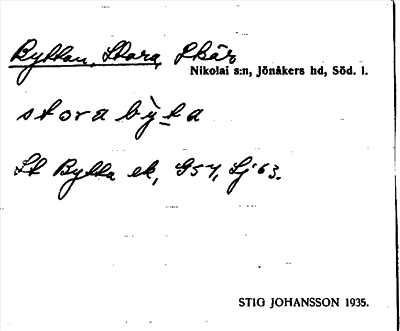 Byttan, Stora, Skär
Nikolai s:n, Jönåkers hd, Söd. l.
stora bỳta
St Bytta ek, G57, Lj 63.
STIG JOHANSSON 1935.